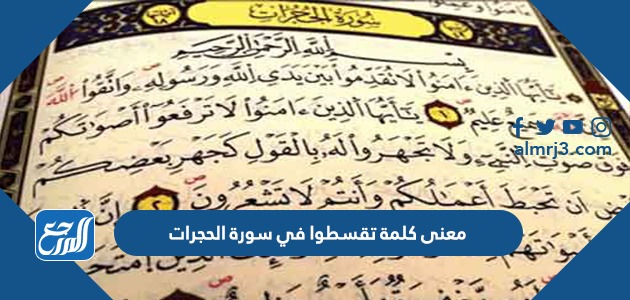 سُورَةُ الحُجُرَاتِ
بِسْمِ اللَّهِ الرَّحْمَٰنِ الرَّحِيمِ
يَٰٓأَيُّهَا الَّذِينَ ءَامَنُوا لَا تُقَدِّمُوا بَيْنَ يَدَيِ اللَّهِ وَرَسُولِهِۦ وَاتَّقُوا اللَّهَ
عَلِيمٌ ١ يَٰٓأَيُّهَا الَّذِينَ ءَامَنُوا لَا تَرْفَعُوٓا أَصْوَٰتَكُمْ
فَوْقَ صَوْتِ النَّبِيِّ وَلَا تَجْهَرُوا لَهُۥ بِالْقَوْلِ كَجَهْرِ بَعْضِكُمْ
أَن تَحْبَطَ أَعْمَٰلُكُمْ وَأَنتُمْ لَا تَشْعُرُونَ ٢ إِنَّ
almrj3.com
معنى كلمة تقسطوا في سورة الحجرات
المرجع